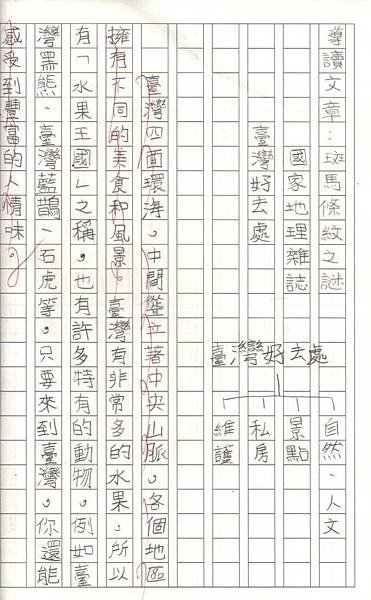 導讀文章：斑馬條紋之謎
國家地理雜誌
臺灣好去處
臺灣好去處
自然、人文
景點
私房
維護
臺灣四面環海。中間聳立著中央山脈。各個地區
擁有不同的美食和風景。臺灣有非常多的水果，所以
有「水果王國」之稱，也有許多特有的動物，例如臺
灣黑熊、臺灣藍鵲、石虎等。只要來到臺灣，你還能
感受到豐富的人情味。